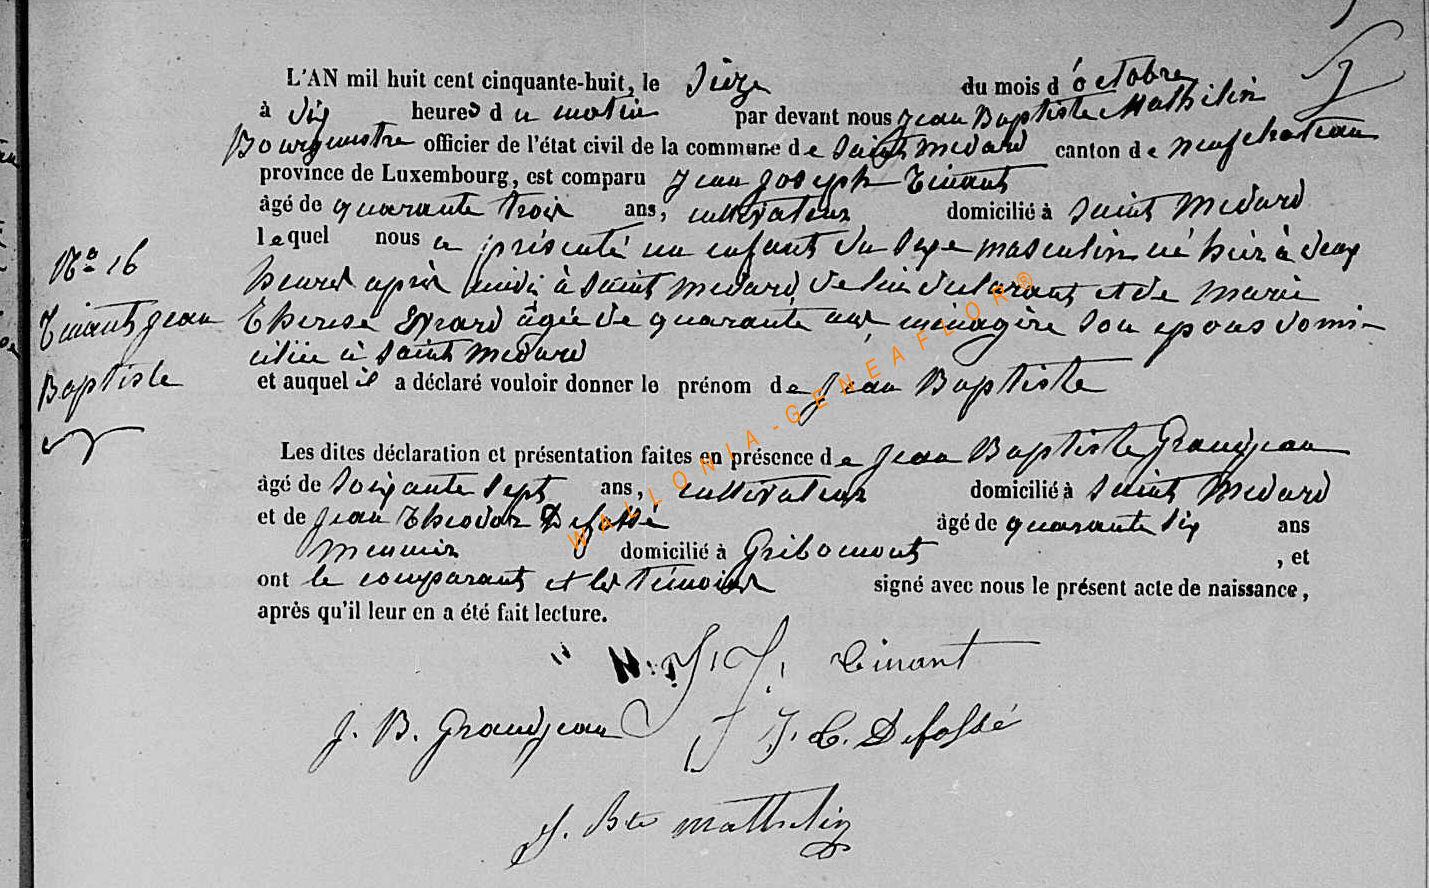 L'AN mil huit cent cinquante-huit, le Seize du mois d'octobre
à dix heures du matin par devant nous Jean Baptiste Mathelin
Bourgmestre officier de l'état civil de la commune de Saint Medard canton de neufchateau
province de Luxembourg, est comparu Jean Joseph Tinant
âgé de quarante trois ans, cultivateur domicilié à Saint Medard
lequel nous a présenté un enfant du Sexe masculin né hier à deux
heures après midi à Saint Medard, de lui déclarant et de Marie
Therese Evrard âgée de quarante ans ménagère Son epouse domi-
ciliée à Saint Medard
et auquel il a déclaré vouloir donner le prénom de Jean Baptiste
No 16
Tinant Jean
Baptiste
Les dites déclaration et présentation faites en présence de Jean Baptiste Grandjean
âgé de Soixante Sept ans, cultivateur domicilié à Saint Medard
et de Jean Theodor Defossé âgé de quarante Six ans
Meunier domicilié à Gribomont , et
ont le comparant et les témoins signé avec nous le présent acte de naissance,
après qu'il leur en a été fait lecture.
J. J. Tinant
J. B. Grandjean J. T. Defossé
J. Bte Mathelin
WALLONIA-GENEAFLOR®